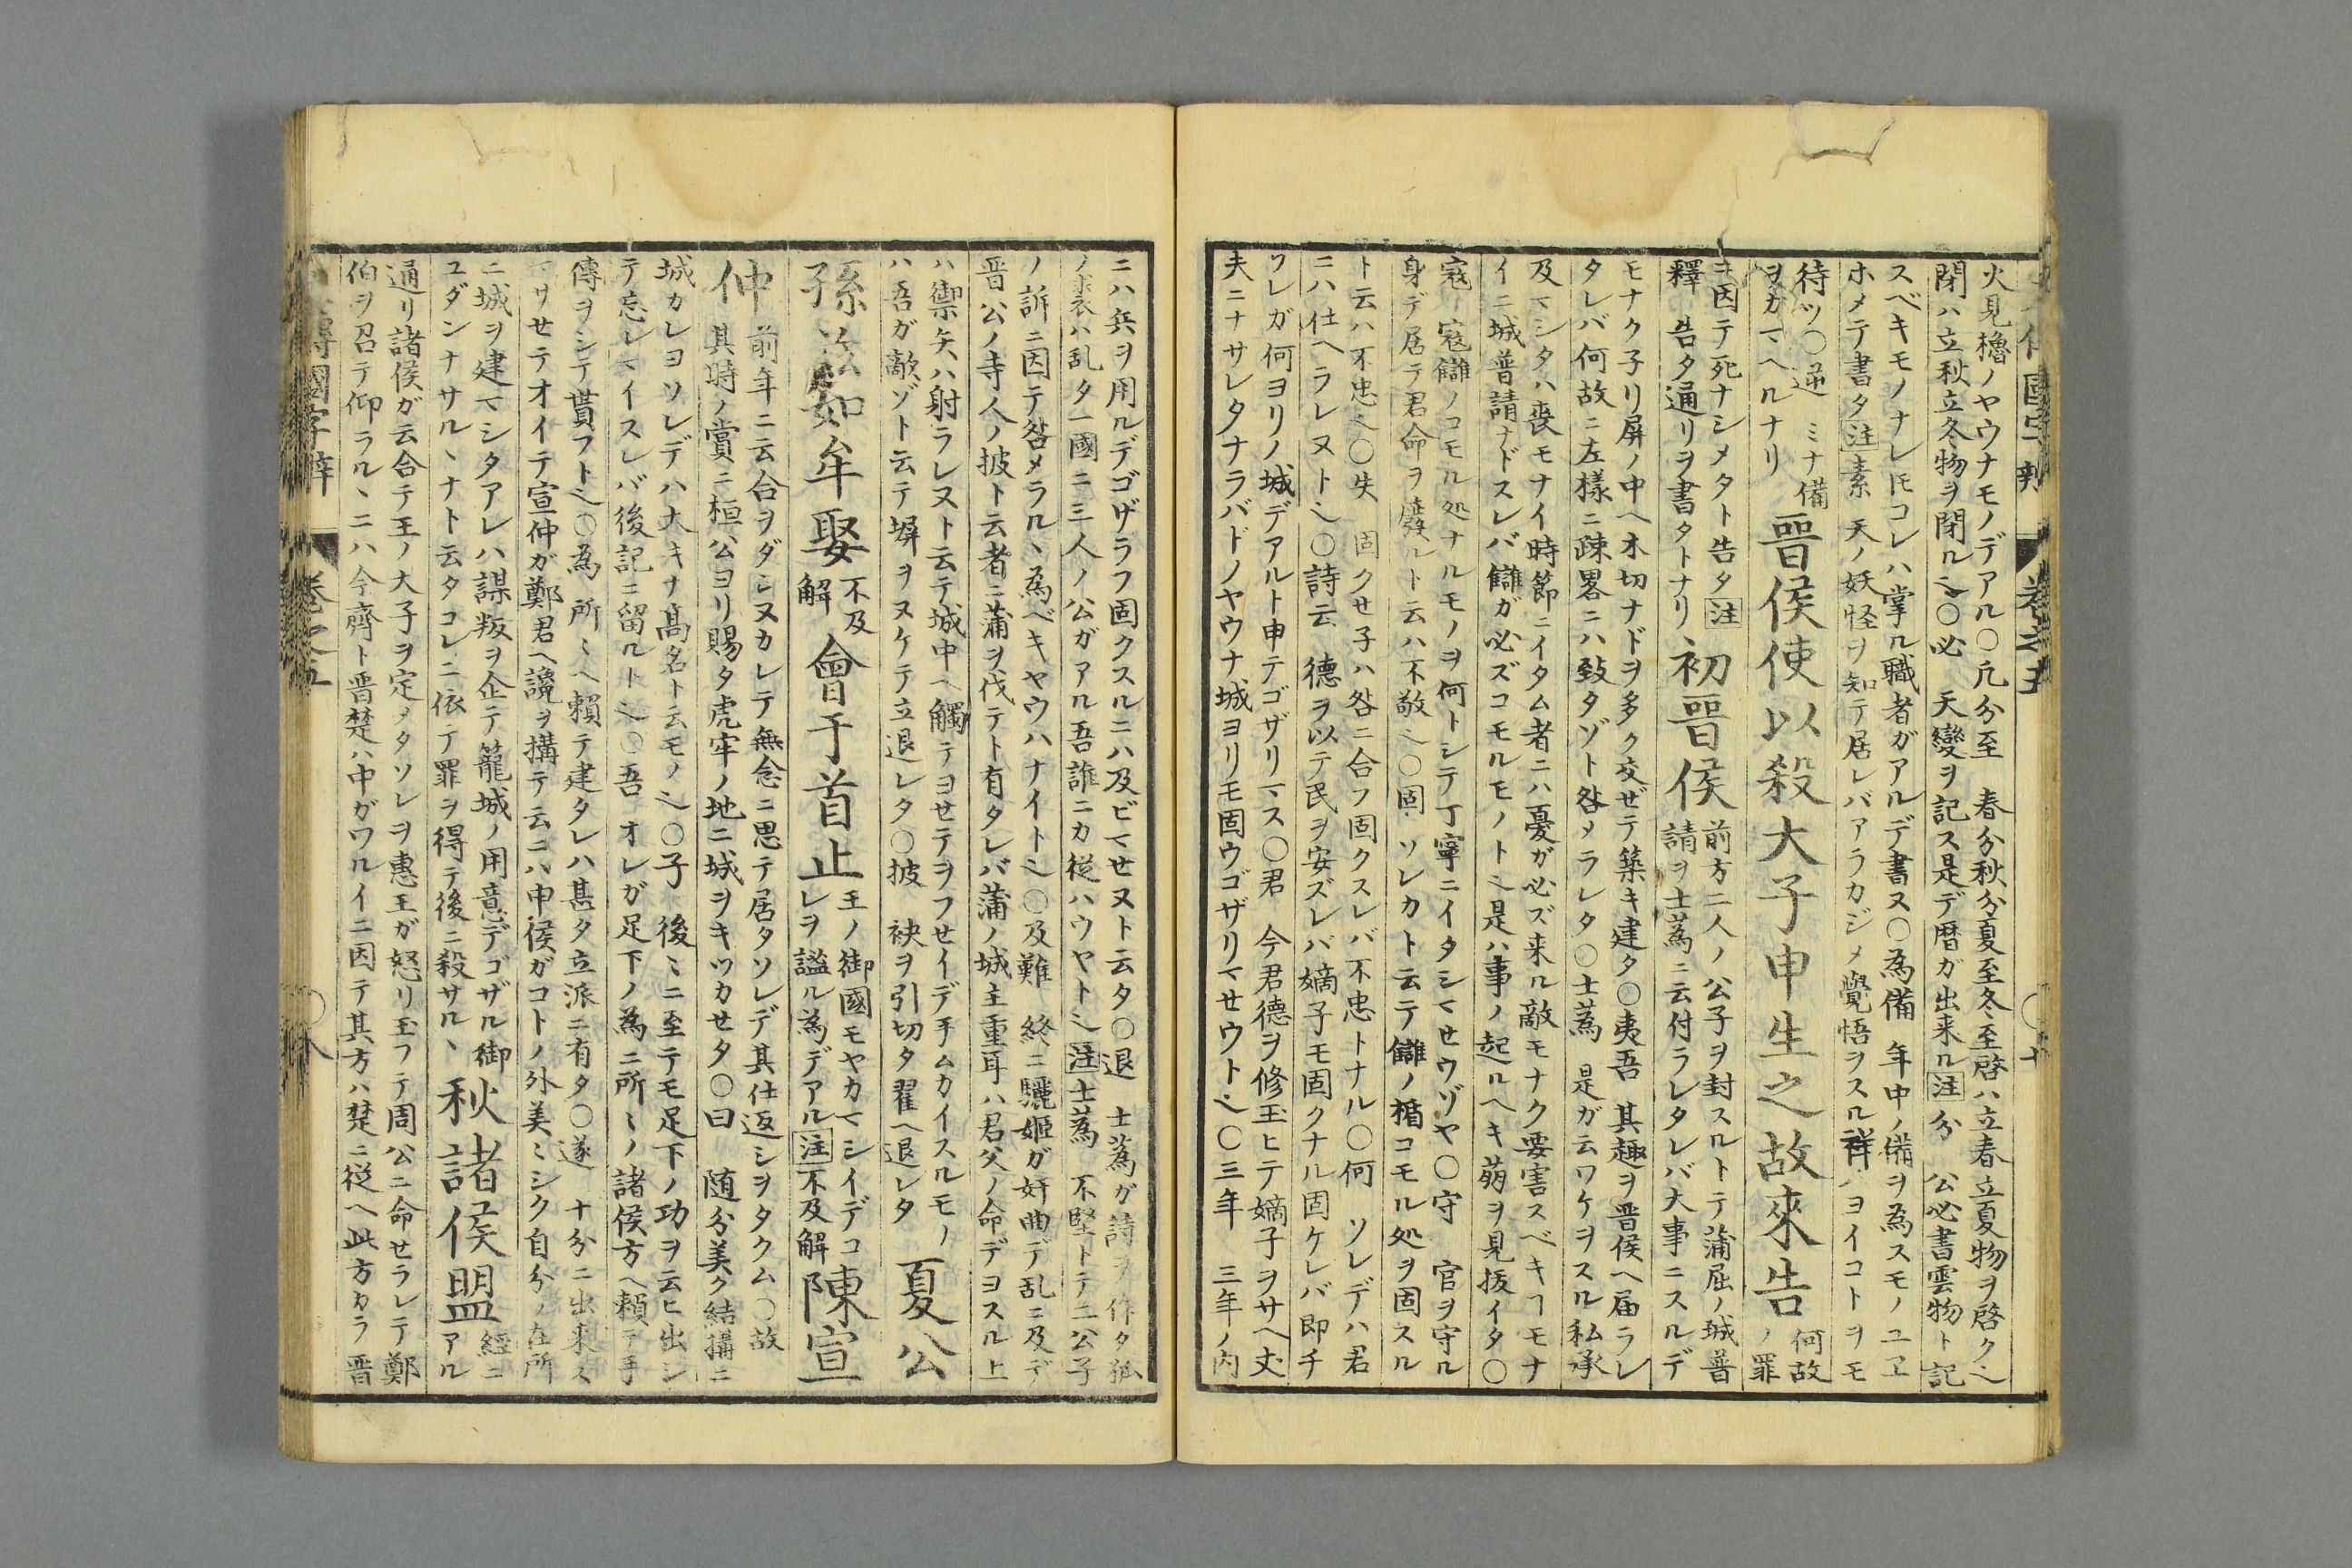 火見櫓ノヤウナモノデアル〇凢分至　春分秋分夏至冬至啓ハ立春立夏物ヲ啓クヘ
閉ハ立秋立冬物ヲ閉ルヘ〇必　天變ヲ記ス是デ暦ガ出来ル注分　公必書雲物ト記
スベキモノナレ𪜈コレハ掌ル職者ガアルデ書ヌ〇為備　年中ノ備ヲ為スモノユヱ
ホメテ書タ注素　天ノ妖怪ヲ知テ居レバアラカジメ覺悟ヲスル祥ハヨイコトヲモ
待ツ〇逆　ミナ備
ヲカマヘルナリ
晋侯使以殺大子申生之故來告
何故
ノ罪
ニ因テ死ナシメタト告タ注
釋　告タ通リヲ書タトナリ
初晋侯
前方二人ノ公子ヲ封スルトテ蒲屈ノ城普
請ヲ士蔿ニ云付ラレタレバ大事ニスルデ
モナク子リ屏ノ中ヘ木切ナドヲ多ク交ゼテ築キ建タ〇夷吾　其趣ヲ晋侯ヘ届ラレ
タレバ何故ニ左樣ニ疎畧ニハ致タゾト咎メラレタ〇士蔿　是ガ云ワケヲスル私承
及マシタハ喪モナイ時節ニイタム者ニハ憂ガ必ズ来ル敵モナク要害スベキヿモナ
イニ城普請ナドスレバ讎ガ必ズコモルモノトヘ是ハ事ノ起ルヘキ萠ヲ見抜イタ〇
寇　寇讎ノコモル処ナルモノヲ何トシテ丁寧ニイタシマせウゾヤ〇守　官ヲ守ル
身デ居テ君命ヲ廢レト云ハ不敬ヘ〇固　ソレカト云テ讎ノ楯コモル処ヲ固スル
ト云ハ不忠ヘ〇失　固クせ子ハ咎ニ合フ固クスレバ不忠トナル〇何　ソレデハ君
ニハ仕ヘラレヌトヘ〇詩云　德ヲ以テ民ヲ安ズレバ嫡子モ固クナル固ケレバ即チ
ワレガ何ヨリノ城デアルト申テゴザリマス〇君　今君德ヲ修玉ヒテ嫡子ヲサヘ丈
夫ニナサレタナラバドノヤウナ城ヨリモ固ウゴザリマせウトヘ〇三年　三年ノ内
ニハ兵ヲ用ルデゴザラフ固クスルニハ及ビマせヌト云タ〇退　士蔿ガ詩ヲ作タ狐
ノ裘ハ乱タ一國ニ三人ノ公ガアル吾誰ニカ從ハウヤトヘ注士蔿　不堅トテ二公子
ノ訴ニ因テ咎メラルヽ為ベキヤウハナイトヘ〇及難　終ニ驪姬ガ奸曲デ乱ニ及デ
晋公ノ寺人ノ披ト云者ニ蒲ヲ伐テト有タレバ蒲ノ城主重耳ハ君父ノ命デヨスル上
ハ禦矢ハ射ラレヌト云テ城中ヘ觸テヨせテヲフせイデ手ムカイスルモノ
ハ吾ガ敵ゾト云テ塀ヲヌケテ立退レタ〇披　袂ヲ引切タ翟ヘ退レタ
夏公
孫茲如牟娶
不及
解
會于首止
王ノ御國モヤカマシイデコ
レヲ謐ル為デアル注不及解
陳宣
仲
前年ニ云合ヲダシヌカレテ無念ニ思テ居タソレデ其仕返シヲタクム〇故
其時ノ賞ニ桓公ヨリ賜タ虎牢ノ地ニ城ヲキツカせタ〇曰　随分美ク結構ニ
城カレヨソレデハ大キナ高名ト云モノヘ〇子　後ニ至テモ足下ノ功ヲ云ヒ出シ
テ忘レマイスレバ後記ニ留ルトヘ〇吾　オレガ足下ノ為ニ所ミノ諸侯方ヘ賴テ手
傳ヲシテ貰フトヘ〇為　所ミヘ賴テ建タレハ甚タ立派ニ有タ〇遂　十分ニ出来ス
マサせテオイテ宣仲ガ鄭君ヘ讒ヲ搆テ云ニハ申侯ガコトノ外美ミシク自分ノ在所
ニ城ヲ建マシタアレハ謀叛ヲ企テ籠城ノ用意デゴザル御
ユダンナサルヽナト云タコレニ依テ罪ヲ得テ後ニ殺サルヽ
秋諸侯盟
經ニ
アル
通リ諸侯ガ云合テ王ノ大子ヲ定メタソレヲ惠王ガ怒リ玉フテ周公ニ命せラレテ鄭
伯ヲ召テ仰ラルヽニハ今齊ト晋楚ハ中ガワルイニ因テ其方ハ楚ニ從ヘ此方カラ晋